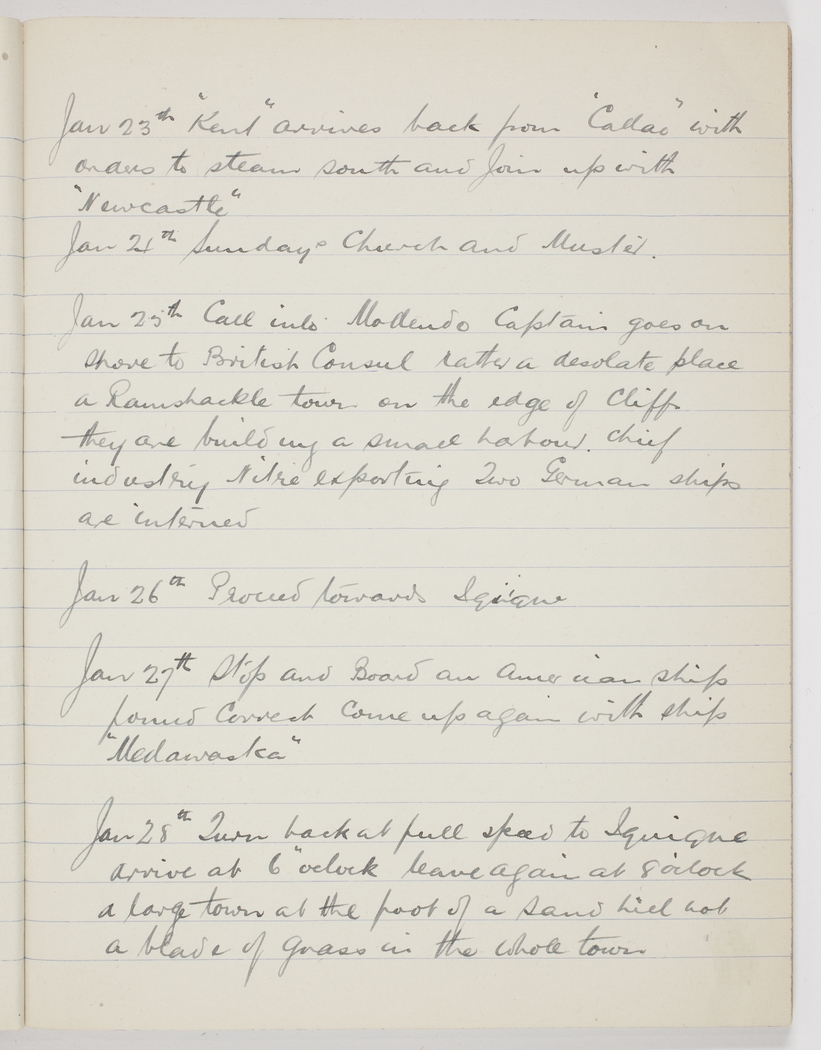 Jan 23th "Kent" arrives back from "Callao" with
orders to steam south and Join up with
"Newcastle"
Jan 24th Sunday. Church and Muster.
Jan 25th Call into Mollendo Captain goes on
shore to British Consul rather a desolate place
a Ramshackle town on the edge of Cliffs
they are building a small harbour. chief
industry Nitre exporting Two German ships
are interned
Jan 26th Proceed towards Iquique
Jan 27th Stop and Board an American ship
found Correct Come up again with ship
"Medawaska"
Jan 28th Turn back at full speed to Iquique
arrive at 6 "oclock leave again at 8 oclock
a large town at the foot of a sand hill not
a blade of grass in the whole town